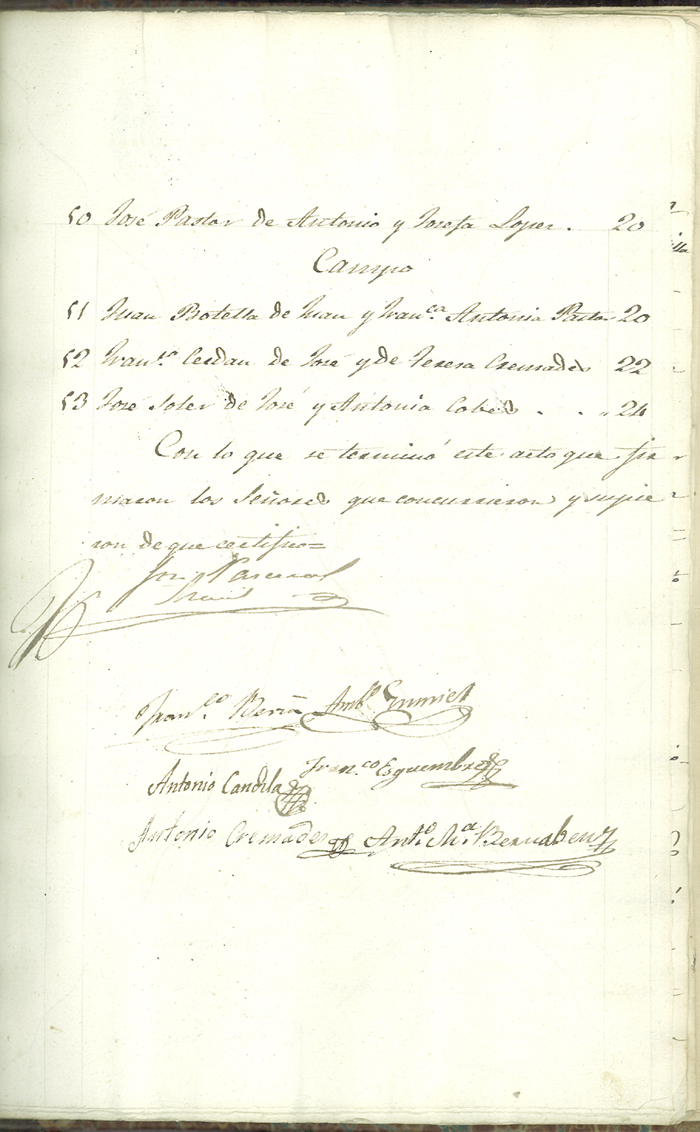 50 José Pastor de Antonio y Josefa Lopez. 20
Campo
51 Juan Botella de Juan y Fran.ca Antonia Pastor 20
52 Fran.co Cerdan de José y de Teresa Cremades 22
53 José Soler de José y Antonia Cobes . . " 24
Con lo que se terminó este acto que fir
maron los Señores que concurrieron y supie
ron de que certifico=
José Pascual
Fran.co Amb.o
Antonio Candela Fran.co Esquembre
Antonio Cremades Ant.o M.a Bernabeu